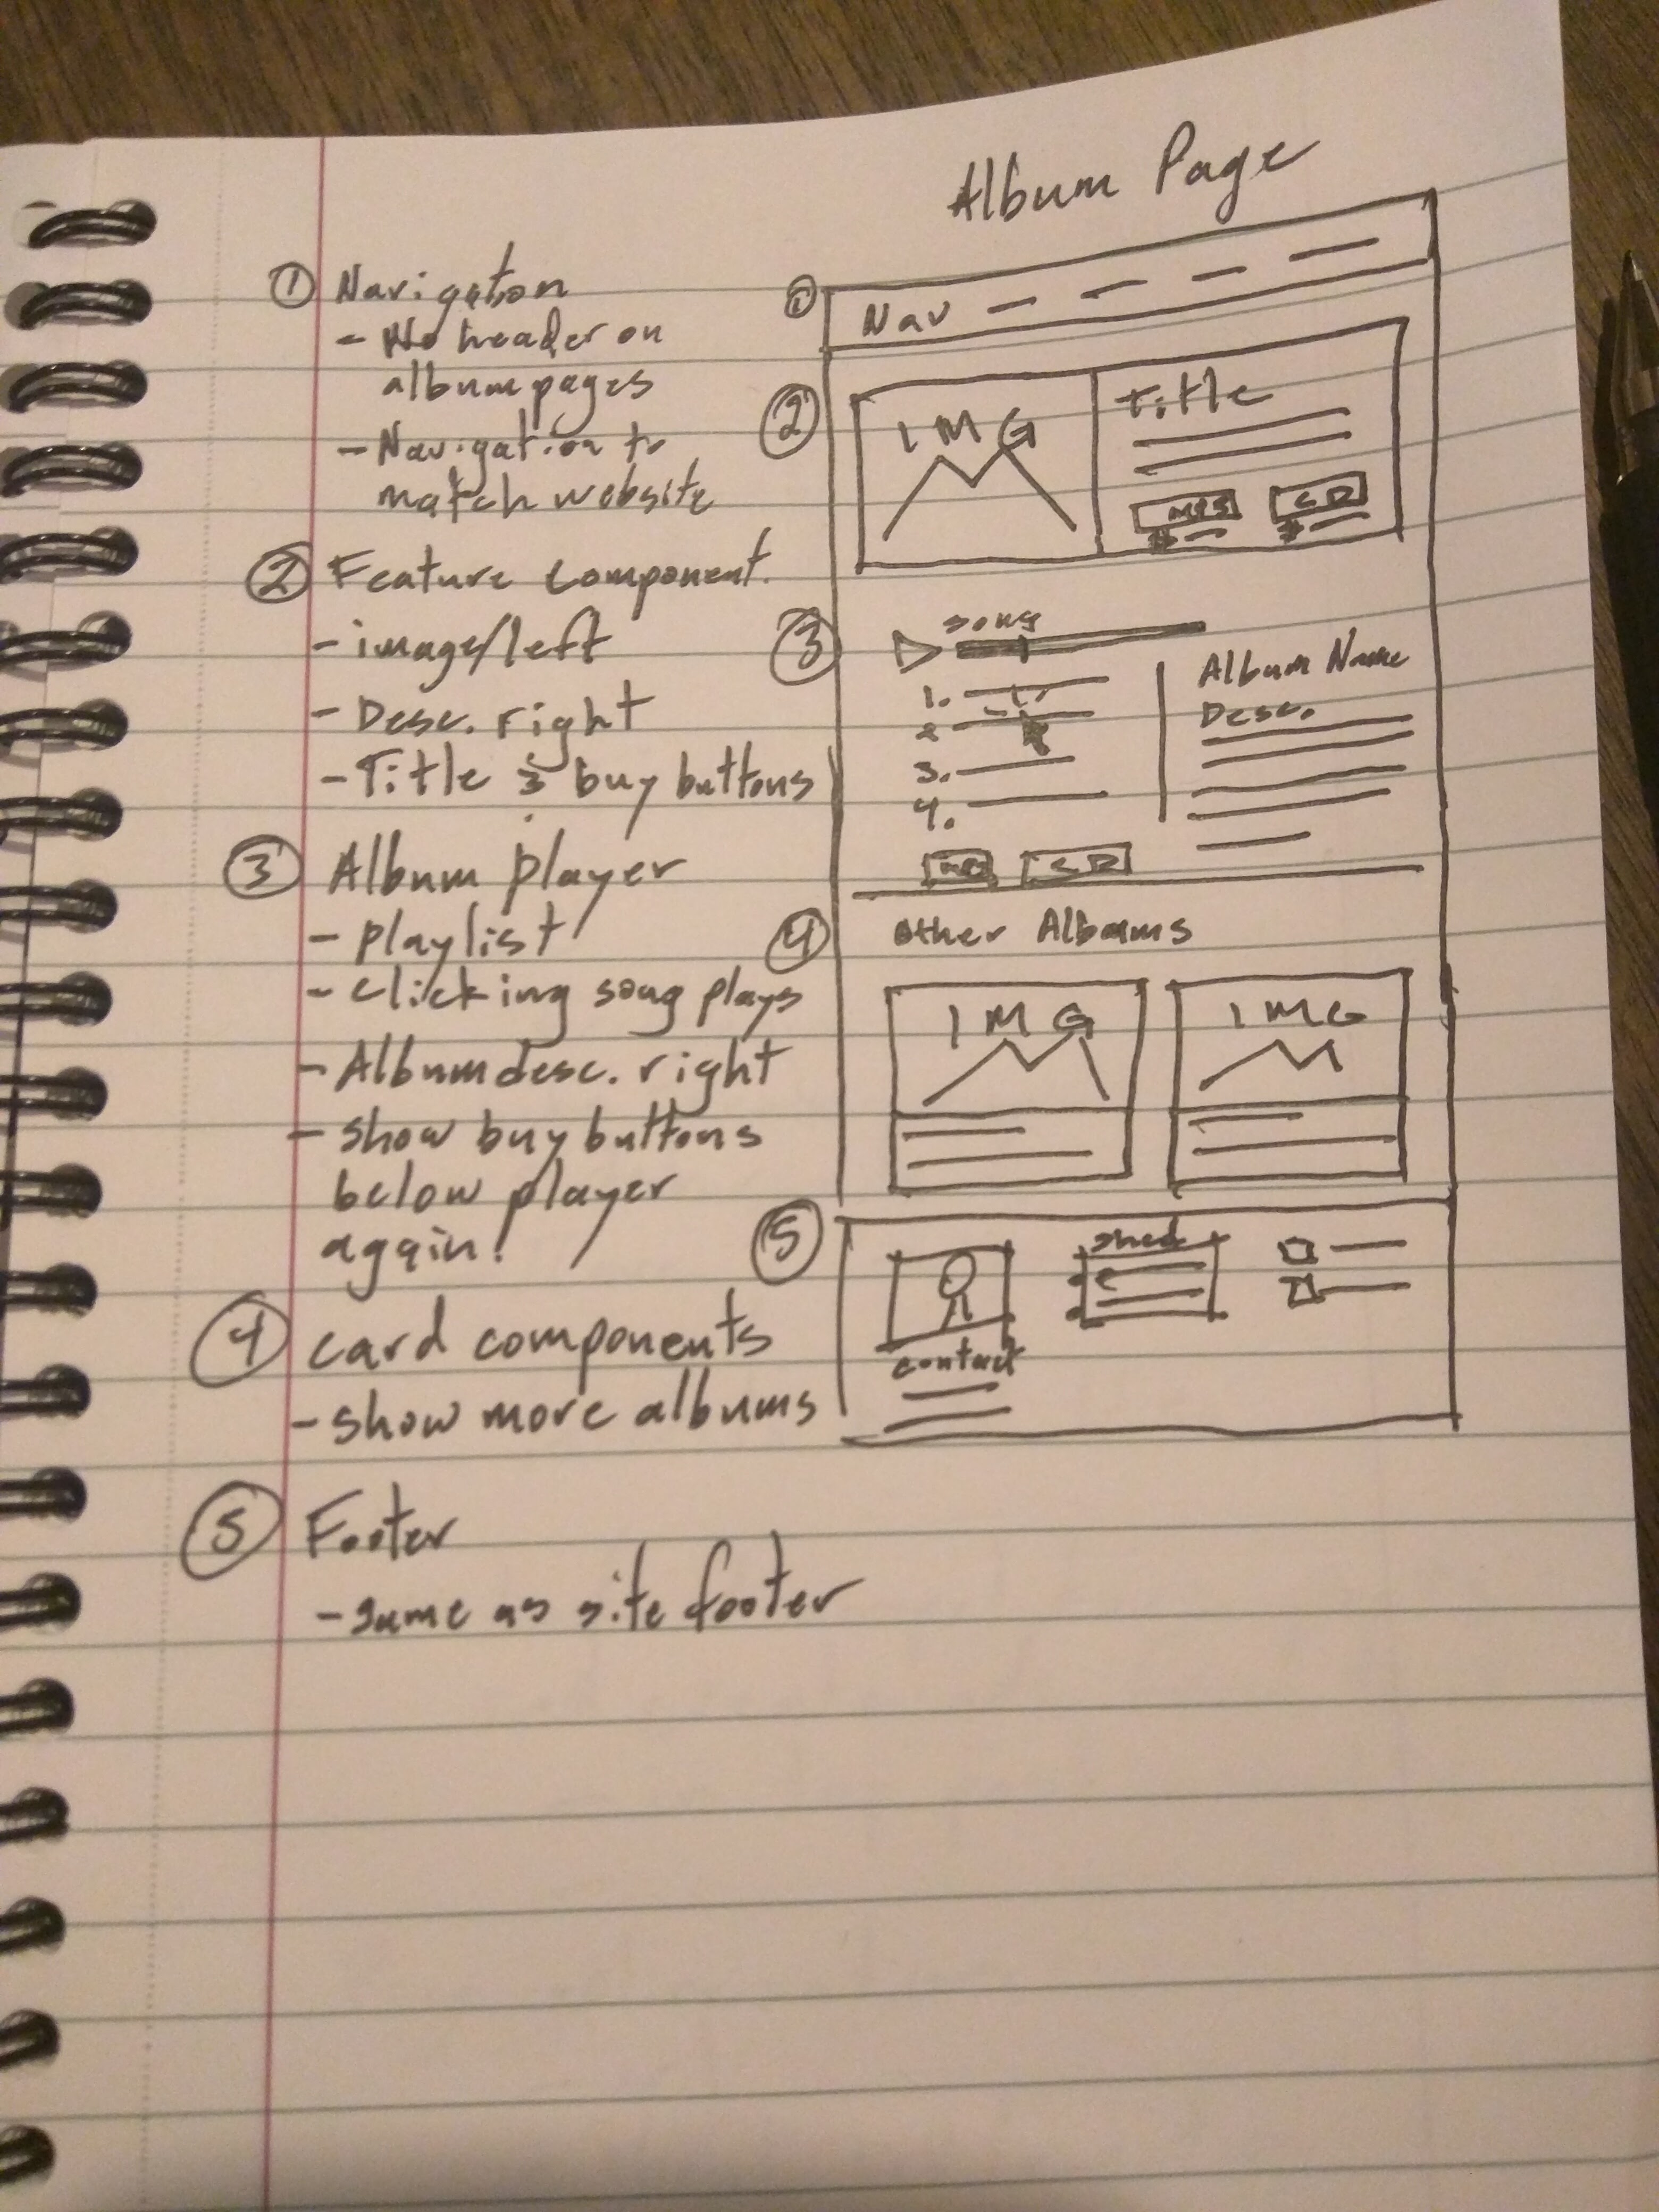 Album Page
① Navigation
- No header on
album pages
- Navigation to
match website
② Feature Component.
- image/left
- Desc. right
- Title & buy buttons
③ Album player
- playlist
- clicking song plays
- Album desc. right
- show buy buttons
below player
again!
④ card components
- show more albums
⑤ Footer
- same as site footer
①
Nav
②
IMG
Title
MP3 CD
$ $
③
song
1.
2
3.
4.
Album Name
Desc.
MP3 CD
④
Other Albums
IMG IMG
⑤
contact